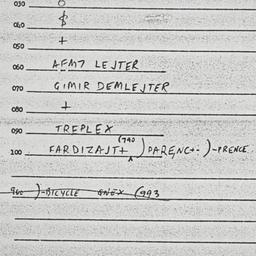 030 O
040 $
050 +
060 AFM7 LEJTER
070 GIMIR DEMLEJTER
080 +
090 TREPLEX
(790
100 FARDIZAJT+ ) PARENC+- ) -PRENCE.
960 ) -BICYCLE GNEX (993